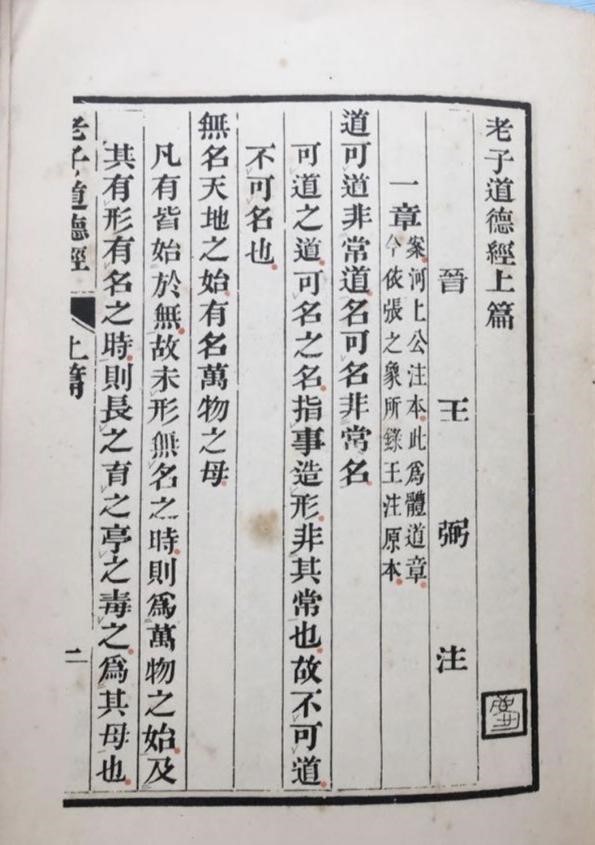 老子道德經上篇
晉 王 弼 注
一章
案河上公注本此爲體道章
今依張之象所錄王注原本
道可道非常道名可名非常名
可道之道可名之名指事造形非其常也故不可道
不可名也
無名天地之始有名萬物之母
凡有皆始於無故未形無名之時則爲萬物之始及
其有形有名之時則長之育之亭之毒之爲其母也
老子道德經 上篇 二